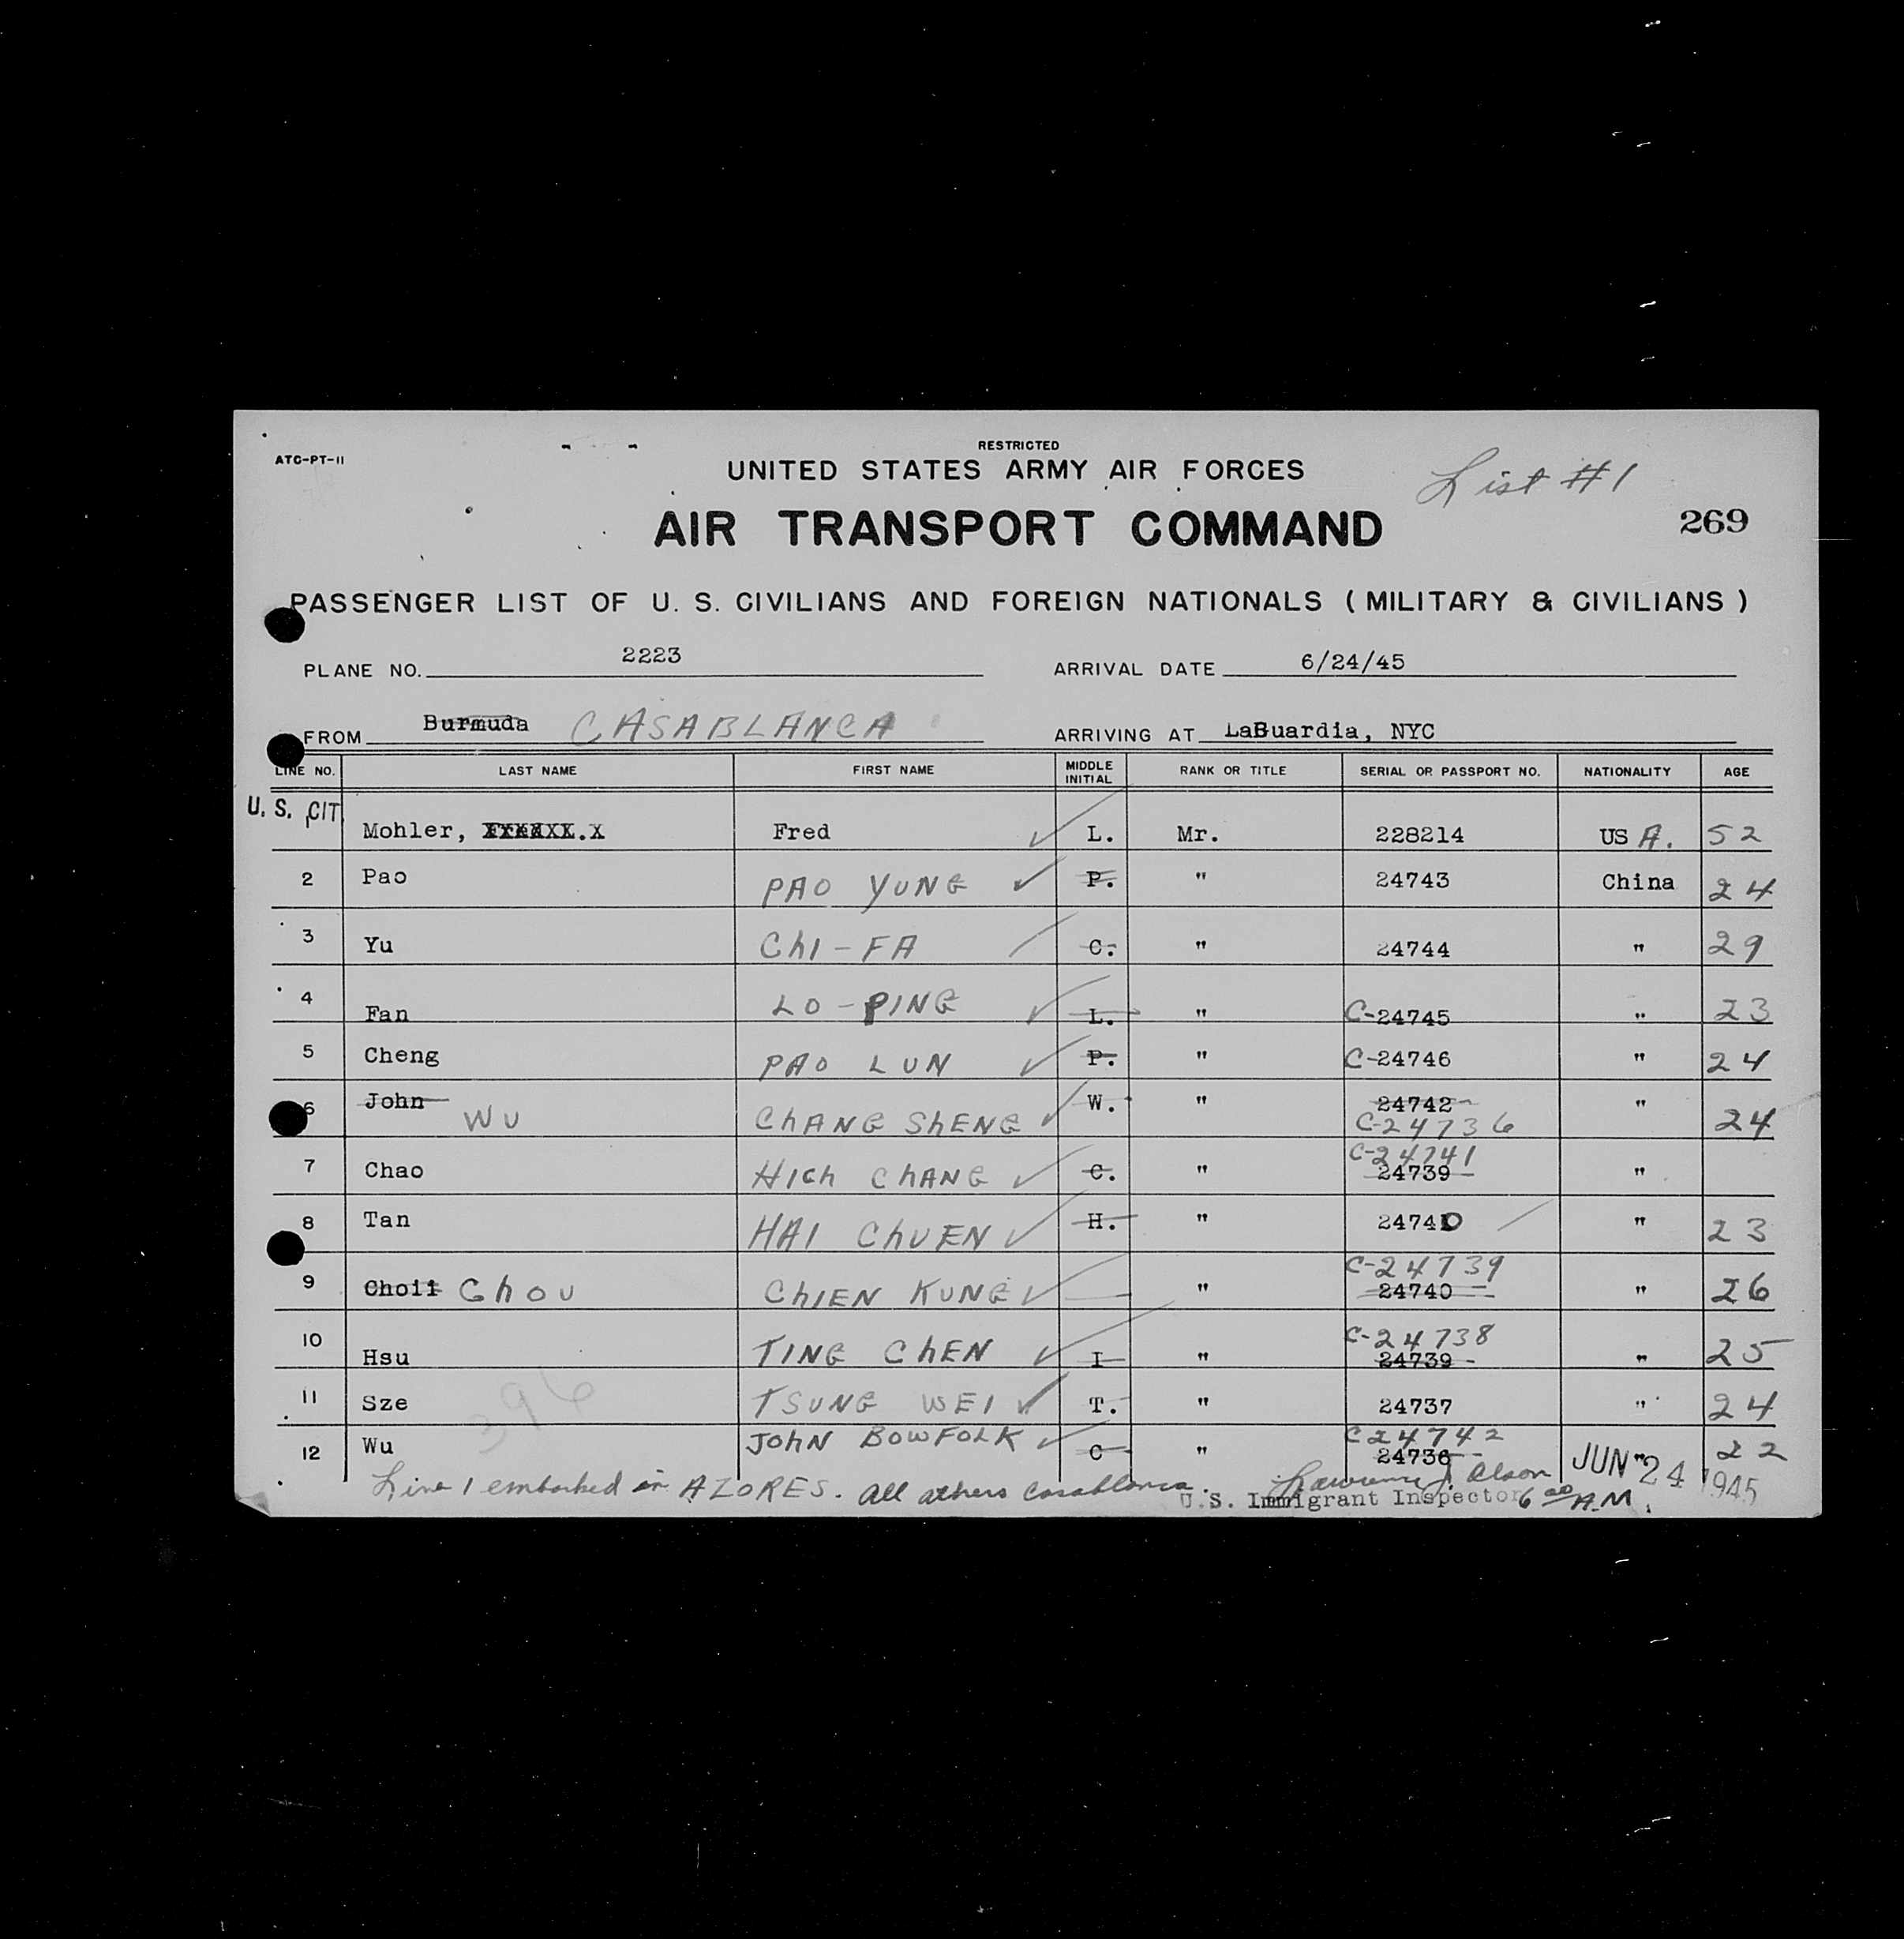 ATC-PT-11
RESTRICTED
UNITED STATES ARMY AIR FORCES
List #1
AIR TRANSPORT COMMAND
269
PASSENGER LIST OF U. S. CIVILIANS AND FOREIGN NATIONALS ( MILITARY & CIVILIANS )
PLANE NO. 2223 ARRIVAL DATE 6/24/45
FROM Burmuda CASABLANCA ARRIVING AT LaGuardia, NYC
LINE NO. LAST NAME FIRST NAME MIDDLE INITIAL RANK OR TITLE SERIAL OR PASSPORT NO. NATIONALITY AGE
U. S. CIT.
Mohler, Fred L. Mr. 228214 US A. 52
2 Pao PAO YUNG P. " 24743 China 24
3 Yu ChI-FA C. " 24744 " 29
4 Fan LO-PING L. " C-24745 " 23
5 Cheng PAO LUN P. " C-24746 " 24
6 John WU ChANG ShENG W. " 24742 C-24736 " 24
7 Chao HICh ChANG C. " C-24741 24739 "
8 Tan HAI ChUEN H. " 24740 " 23
9 Choii Chou ChIEN KUNG " C-24739 24740 " 26
10 Hsu TING ChEN I " C-24738 24739 " 25
11 Sze TSUNG WEI T. " 24737 " 24
396
12 Wu JOhN BOWFOLK C " C24742 24736 " 22
Line 1 embarked in AZORES. All others Casablanca.
Lawrence J. Olson
U.S. Immigrant Inspector
6 00 A.M.
JUN 24 1945